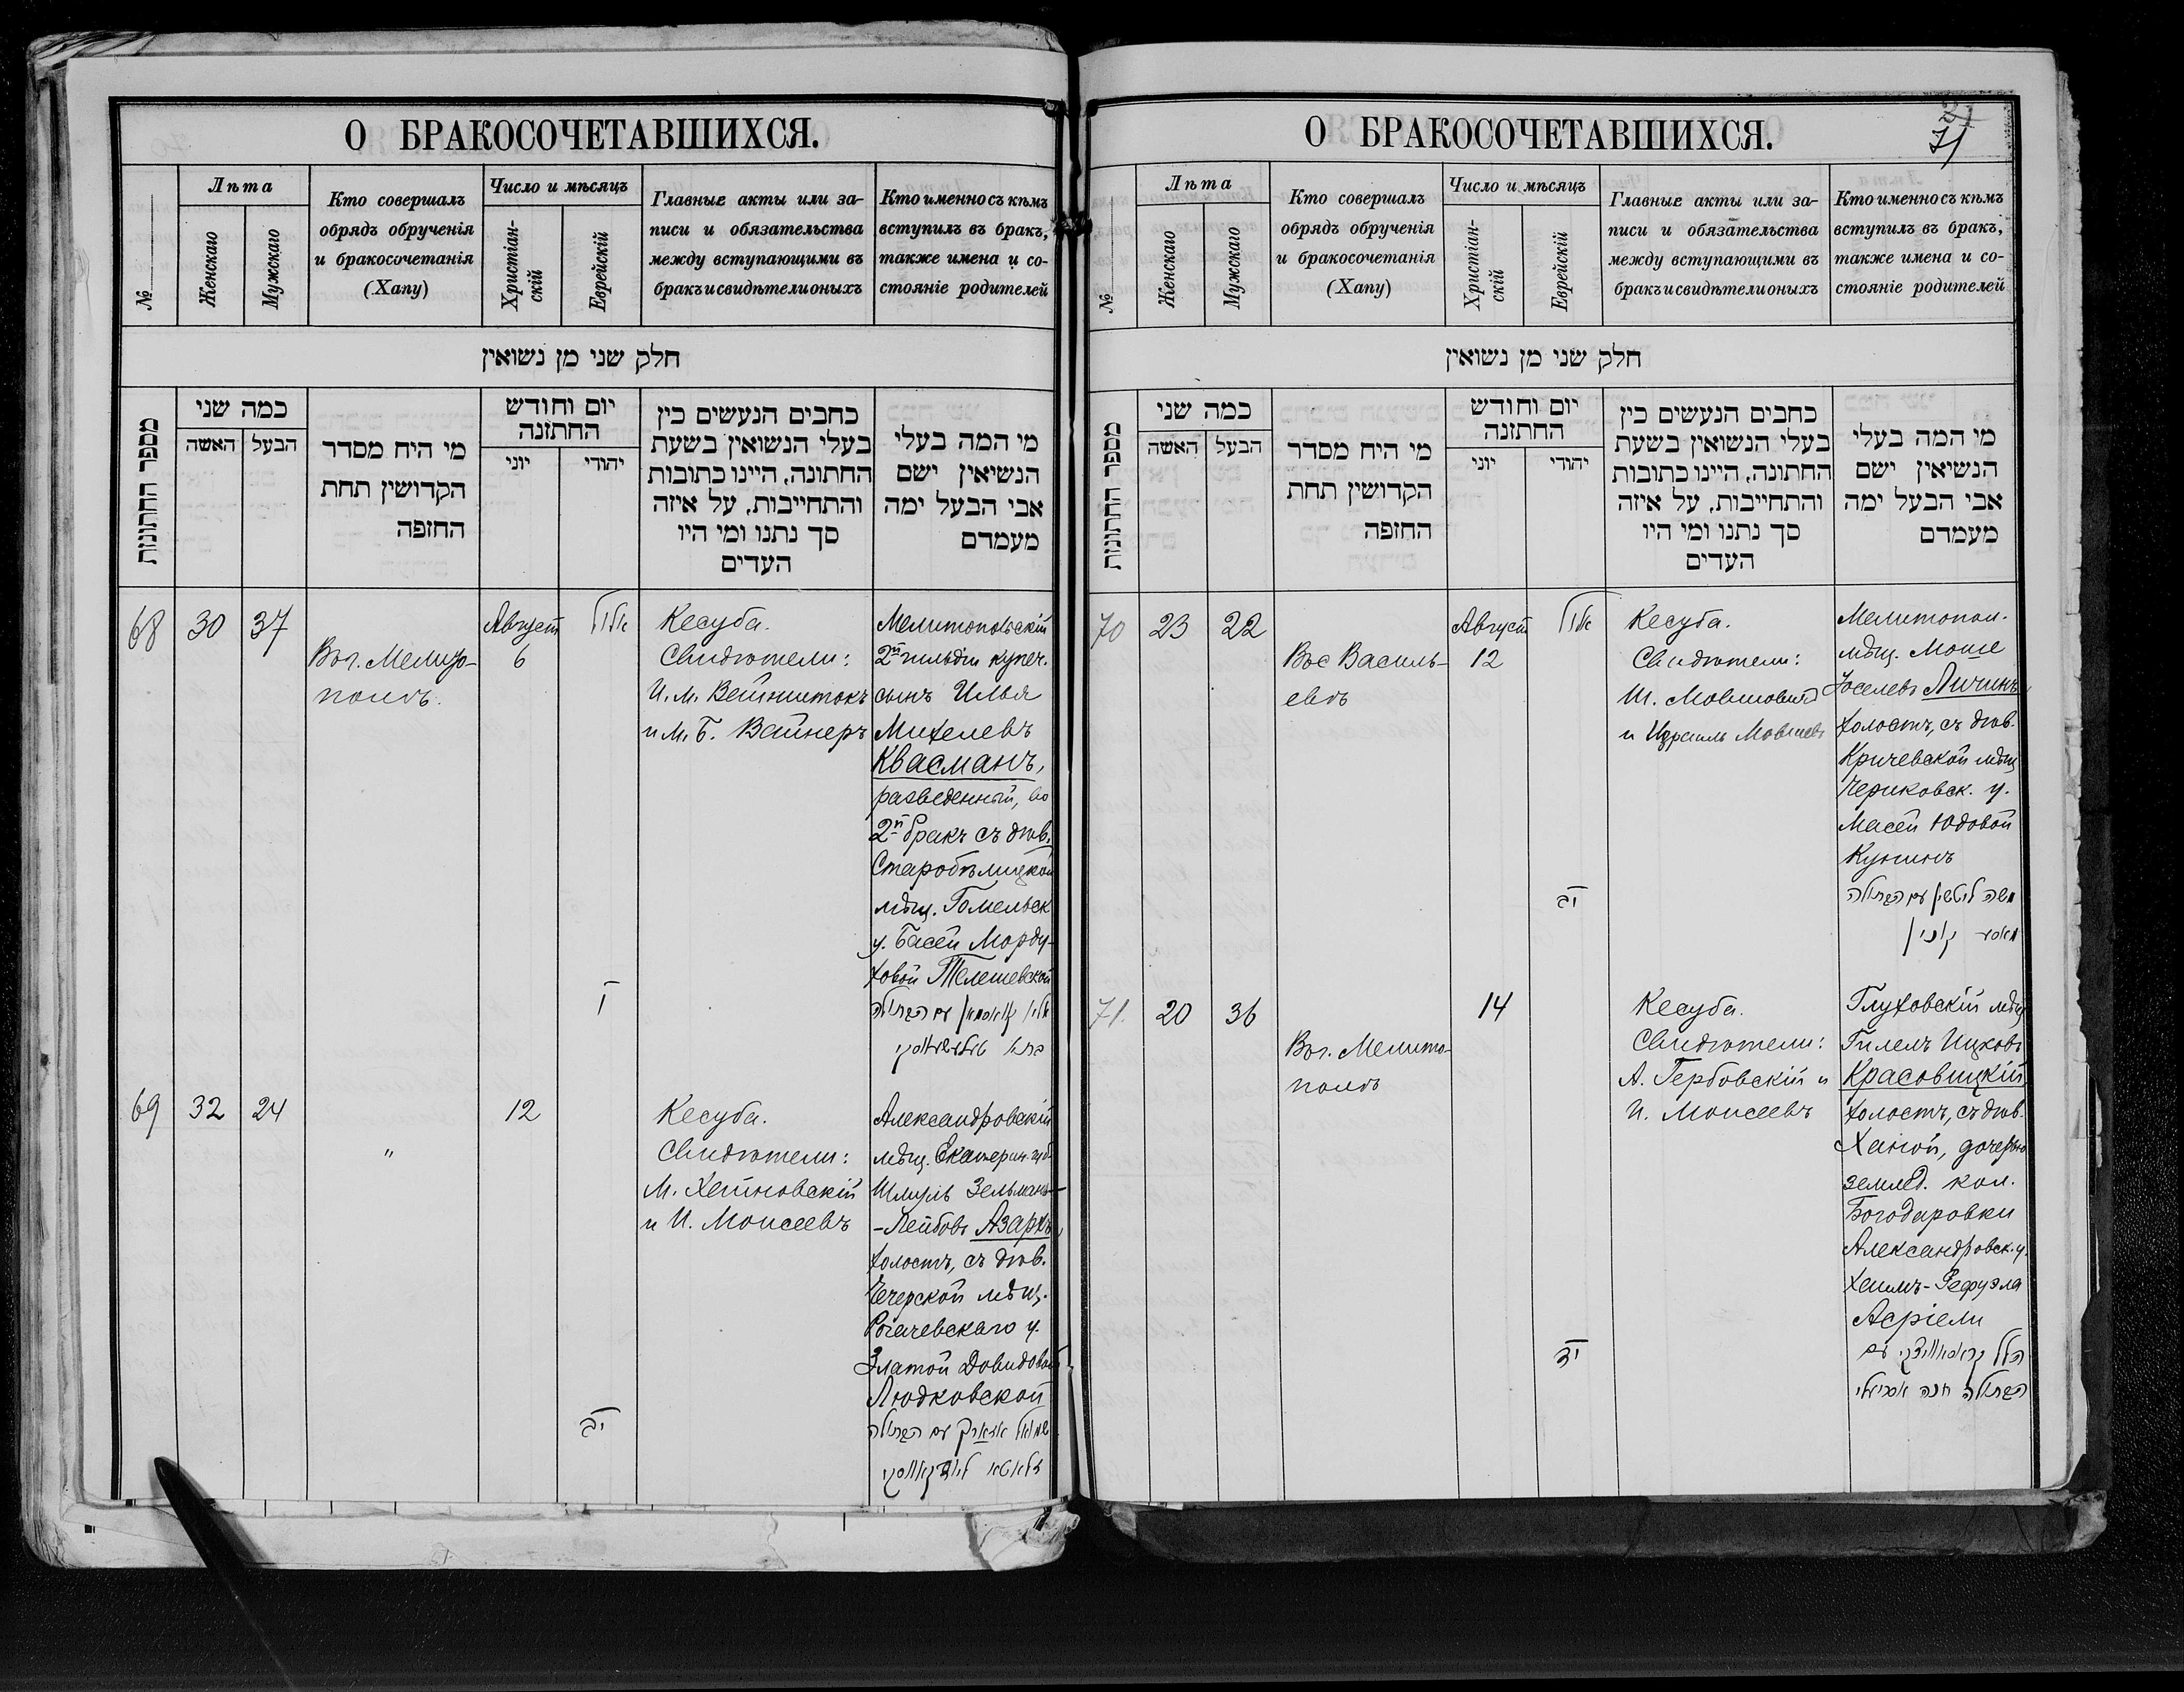 О БРАКОСОЧЕТАВШИХСЯ.
№
Лѣта
Женскаго
Мужскаго
Кто совершалъ
обрядъ обрученія
и бракосочетанія
(Хапу)
Число и мѣсяцъ
Христіан-
скій
Еврейскій
Главные акты или за-
писи и обязательства
между вступающими въ
бракъ и свидѣтели оныхъ
Кто именно съ кѣмъ
вступилъ въ бракъ,
также имена и со-
стояніе родителей
חלק שני מן נשואין
מספר החתונות
כמה שני
האשה
הבעל
מי היח מסדר
הקדושין תחת
החזפה
יום וחודש
החתזנה
יוני
יהודי
כחבים הנעשים כין
בעלי הנשואין בשעת
החתונה, היינו כתובות
והתחייבות, על איזה
סך נתנו ומי היו
העדים
מי המה בעלי
הנשיאין ישם
אבי הבעל ימה
מעמדם
68
30
37
Въ г. Мелито-
полѣ.
Август
6
אלול
ו
Кесуба.
Свидѣтели:
И. М. Вейнштокъ
и М. Б. Вайнеръ
Мелитопольскій
2й гильдіи купеч.
сынъ Илья
Михелевъ
Квасманъ,
разведенный, во
2й бракъ съ дѣв.
Старобѣлицкой
мѣщ. Гомельск
у. Басей Морду-
ховой Телешевской
אליי קוואסמאן עם הבתולה
באסי טעלעשעווסקי
69
32
24
"
12
יב
Кесуба.
Свидѣтели:
М. Хейновскій
и И. Моисеевъ
Александровскій
мѣщ. Екатерин. губ
Шмуль Зельманъ-
-Лейбовъ Азархъ,
холостъ, съ дѣв.
Чечерской мѣщ.
Рогачевскаго у.
Златой Довидовой
Людковской
שמואל אזארק עם הבתולה
זלאטא לודקאווסקי
О БРАКОСОЧЕТАВШИХСЯ.
71
№
Лѣта
Женскаго
Мужскаго
Кто совершалъ
обрядъ обрученія
и бракосочетанія
(Хапу)
Число и мѣсяцъ
Христіан-
скій
Еврейскій
Главные акты или за-
писи и обязательства
между вступающими въ
бракъ и свидѣтели оныхъ
Кто именно съ кѣмъ
вступилъ въ бракъ,
также имена и со-
стояніе родителей
חלק שני מן נשואין
מספר החתונות
כמה שני
האשה
הבעל
מי היח מסדר
הקדושין תחת
החזפה
יום וחודש
החתזנה
יוני
יהודי
כחבים הנעשים כין
בעלי הנשואין בשעת
החתונה, היינו כתובות
והתחייבות, על איזה
סך נתנו ומי היו
העדים
מי המה בעלי
הנשיאין ישם
אבי הבעל ימה
מעמדם
70
23
22
Въ с Василь-
евкѣ
Август
12
אלול
יב
Кесуба.
Свидѣтели:
Ш. Мовшовичъ
и Израиль Мовшевъ
Мелитопол.
мѣщ. Моше
Іоселевъ Личинъ,
холостъ, съ дѣв.
Кричевской мѣщ
Чериковск. у.
Масей Юдовой
Кунинъ
משה ליטשין עם הבתולה
מאסי קונין
71.
20
36
Въ г. Мелито-
полѣ
14
יד
Кесуба.
Свидѣтели:
А. Гербовскій и
И. Моисеевъ
Глуховскій мѣщ
Гилель Ицковъ
Красовицкій
холостъ, съ дѣв.
Ханой, дочерью
землед. кол.
Богодаровки
Александровск. у.
Хаимъ-Рефуэла
Асріели
הלל קראסאוויצקי עם
הבתולה חנה אסריאלי